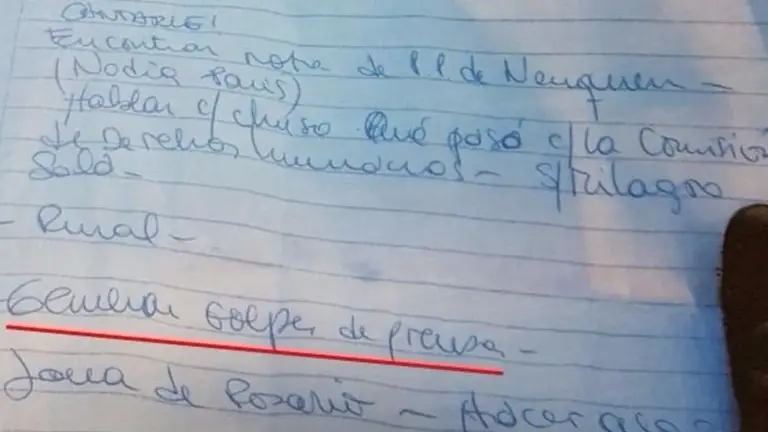 Encontrar nota de P.P. de Neuquen -
(Nodia Paris)
Hablar c/ chino. Qué pasó c/ la Comisión
de Derechos humanos - S/ Milagro
Sala -
- Rural -
Generar Golpes de prensa -
Zona de Rosario -